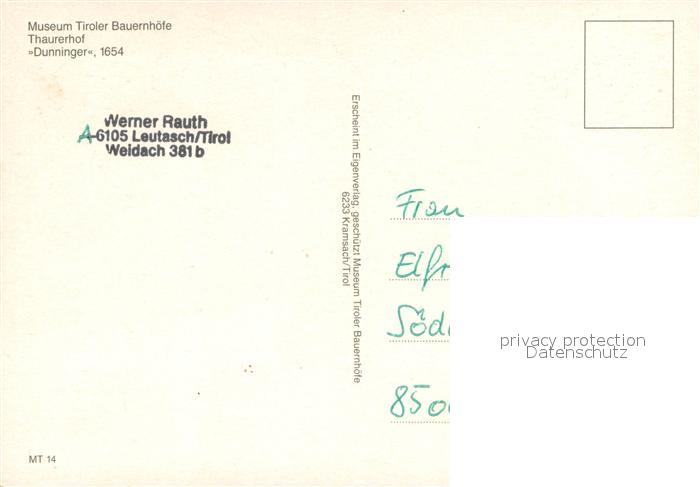 Museum Tiroler Bauernhöfe
Thaurerhof
»Dunninger«, 1654
Werner Rauth
A-6105 Leutasch/Tirol
Weidach 381 b
Erscheint im Eigenverlag, geschützt Museum Tiroler Bauernhöfe
6233 Kramsach/Tirol
Frau
Elfr
Söd
850
privacy protection
Datenschutz
MT 14